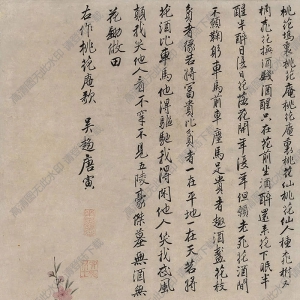 桃花塢裏桃花庵桃花庵裏桃花仙桃花仙人種桃樹又
花換酒錢酒醒只在花前坐酒醉還來花下眠半
醒半醉日復日花落花開年復年但願老死花酒間
不願鞠躬車馬前車塵馬足貴者趣酒盞花枝
貧者緣若將富貴比貧者一在平地一在天若將
花酒比車馬他得驅馳我得閒他人笑我忒風
顛我笑他人看不穿不見五陵豪傑墓無酒無
花鋤做田
右作桃花庵歌 吳趨唐寅